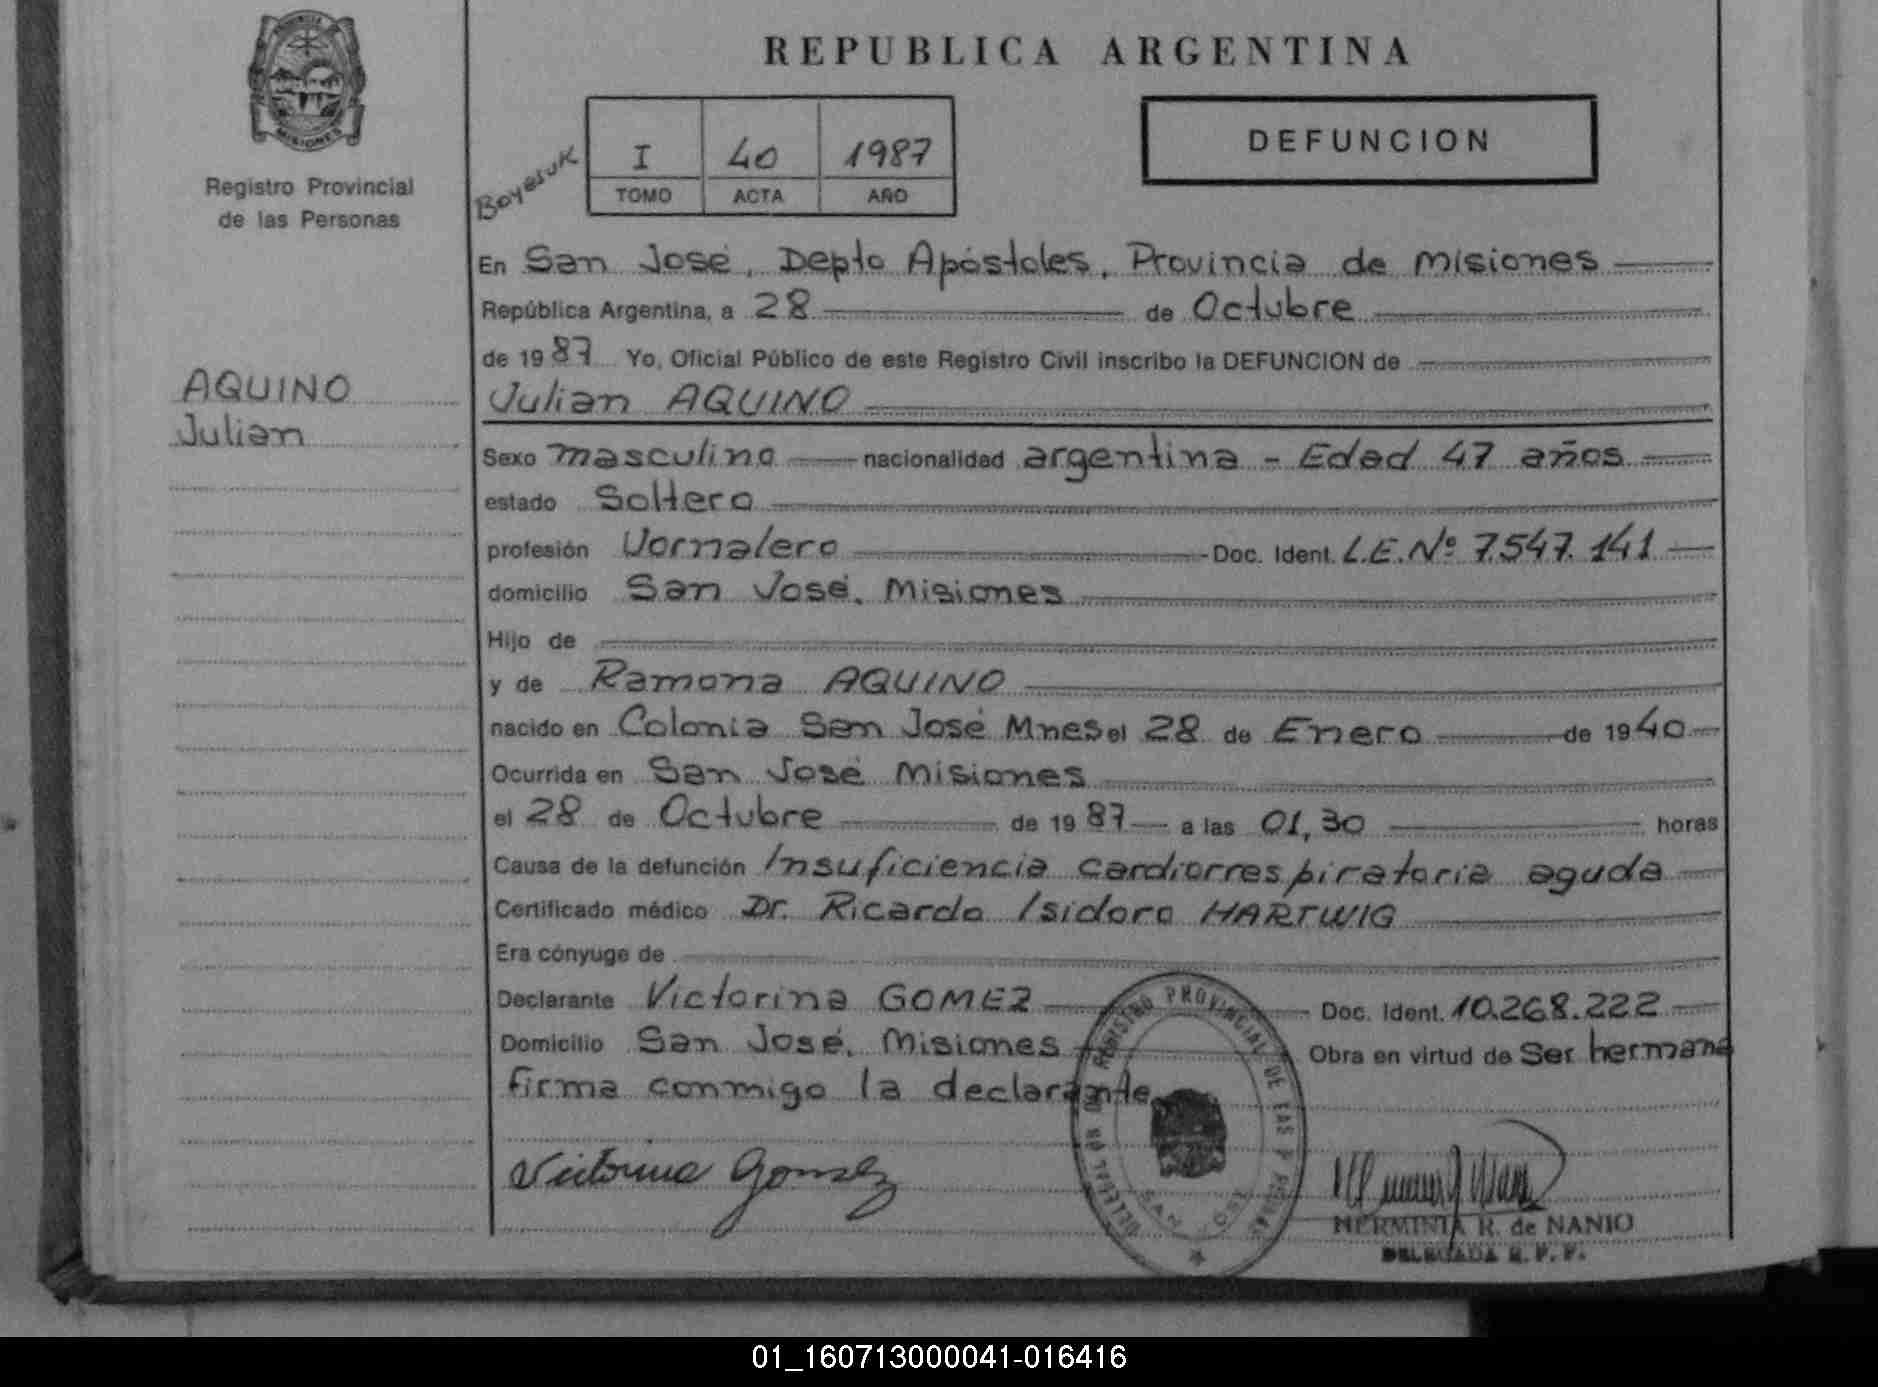 PROVINCIA
MISIONES
Registro Provincial
de las Personas
AQUINO
Julian
REPUBLICA ARGENTINA
Boyesuk
I 40 1987
TOMO ACTA AÑO
DEFUNCION
En San José, Depto Apóstoles, Provincia de Misiones
República Argentina, a 28 de Octubre
de 1987 Yo, Oficial Público de este Registro Civil inscribo la DEFUNCION de
Julian AQUINO
Sexo masculino nacionalidad argentina - Edad 47 años
estado Soltero
profesión Jornalero Doc. Ident. L.E. Nº 7.547.141
domicilio San José, Misiones
Hijo de
y de Ramona AQUINO
nacido en Colonia San José Mnes el 28 de Enero de 1940
Ocurrida en San José Misiones
el 28 de Octubre de 1987 a las 01,30 horas
Causa de la defunción Insuficiencia cardiorrespiratoria aguda
Certificado médico Dr. Ricardo Isidoro HARTWIG
Era cónyuge de
Declarante Victorina GOMEZ Doc. Ident. 10.268.222
Domicilio San José, Misiones Obra en virtud de Ser hermana
firma conmigo la declarante
REGISTRO PROVINCIAL DE LAS
SAN
Victorina Gomez
HERMINIA R. de NANIO
DELEGADA R. P. P.
01_160713000041-016416